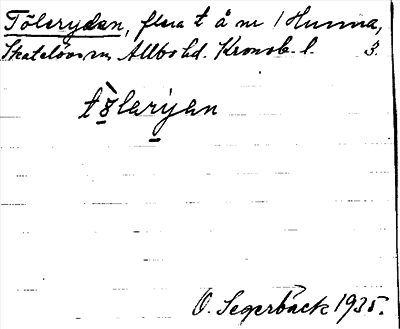 Töleryden, flera t å nr 1 Hunna,
Skatelövs sn, Allbo hd. Kronob. l. 3.
tö̀leryan
O. Segerbäck 1935.